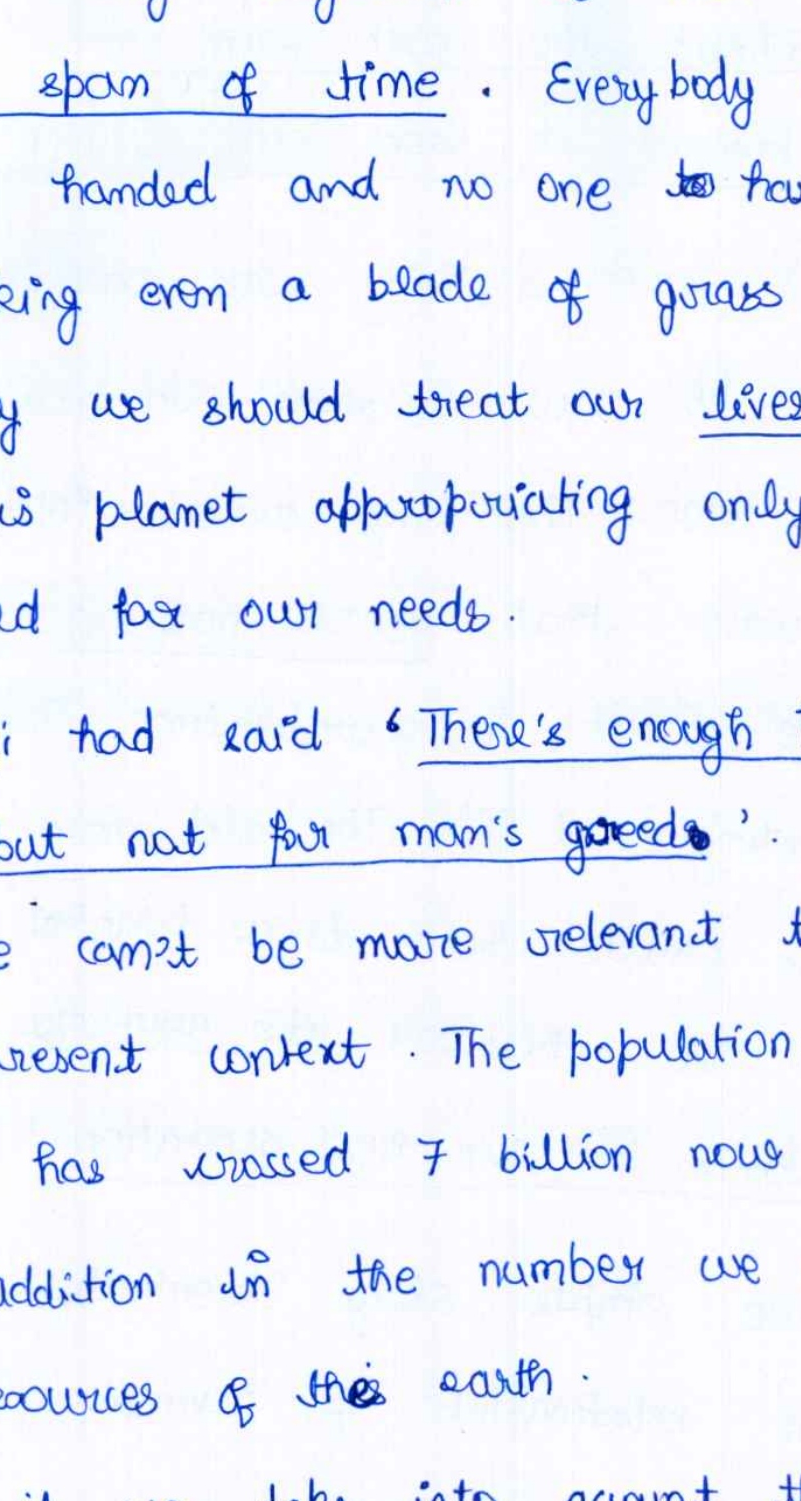 span of time. Everybody
handed and no one has
eing even a blade of grass
y we should treat our lives
is planet appropriating only
ed for our needs.
i had said 'There's enough
but not for man's greeds'.
e can't be more relevant t
resent context. The population
has crossed 7 billion now
addition in the number we
esources of this earth.
take into account th